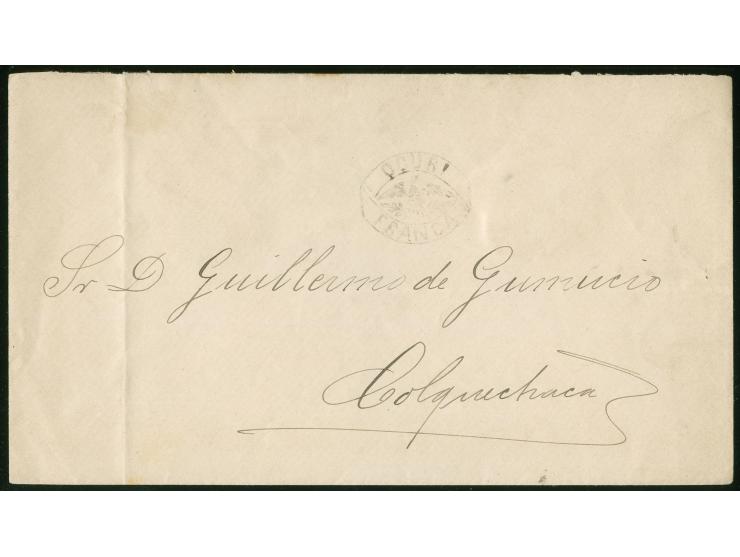 OCURI
FRANCA
Sr D Guillermo de Gumucio
Colquechaca